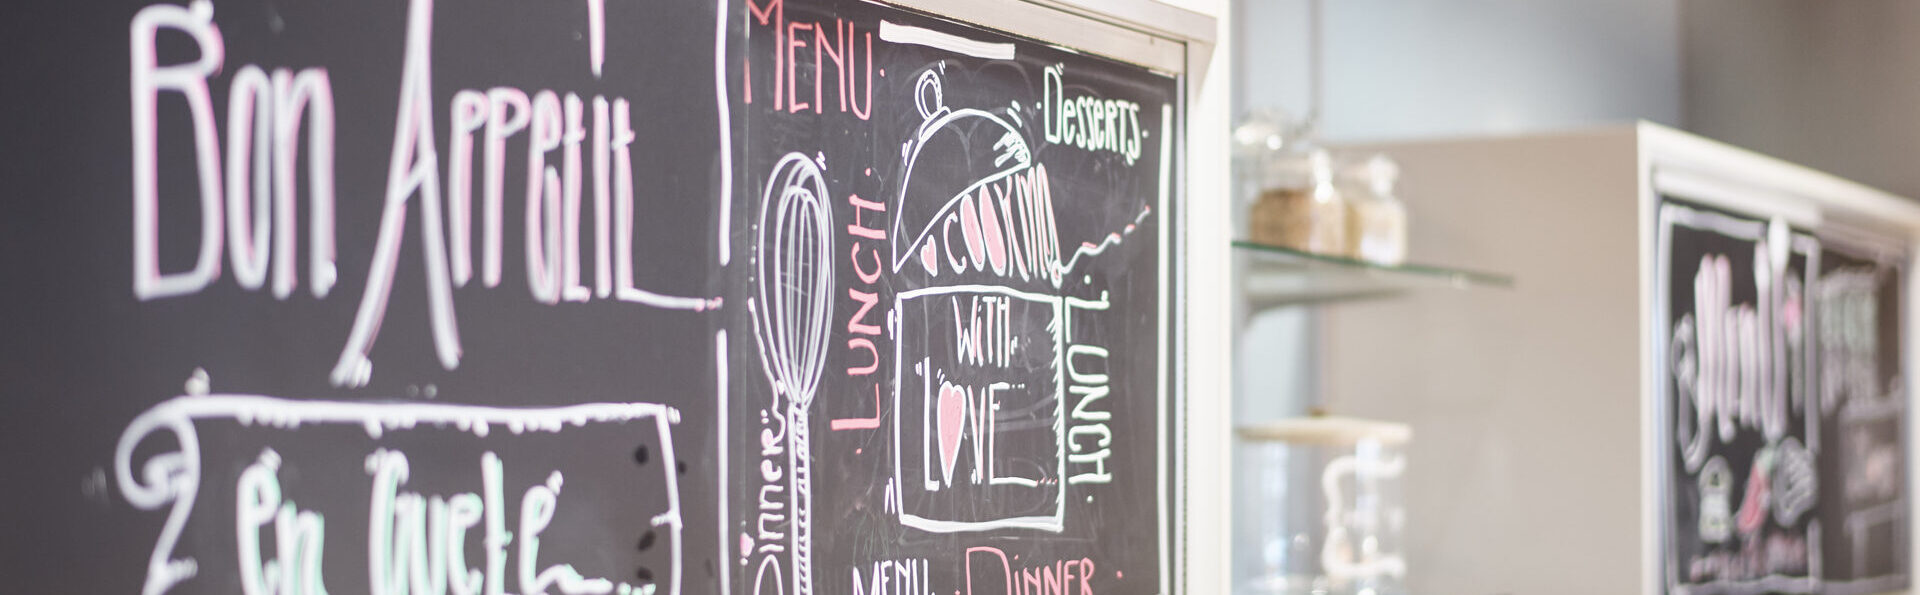 Bon Appetit
en Guete
MENU
LUNCH
Dinner
COOKING
WiTH
LOVE
Desserts
LUNCH
MENU
DINNER